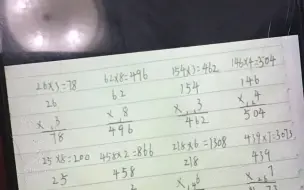 26×3=78 62×8=496 154×3=462 146×4=504
26 62 154 146
×, 3 ×, 8 ×, , 3 ×, , 4
78 496 462 504
25×8=200 458×2=866 218×6=1308 439×7=3073
25 458 218 439